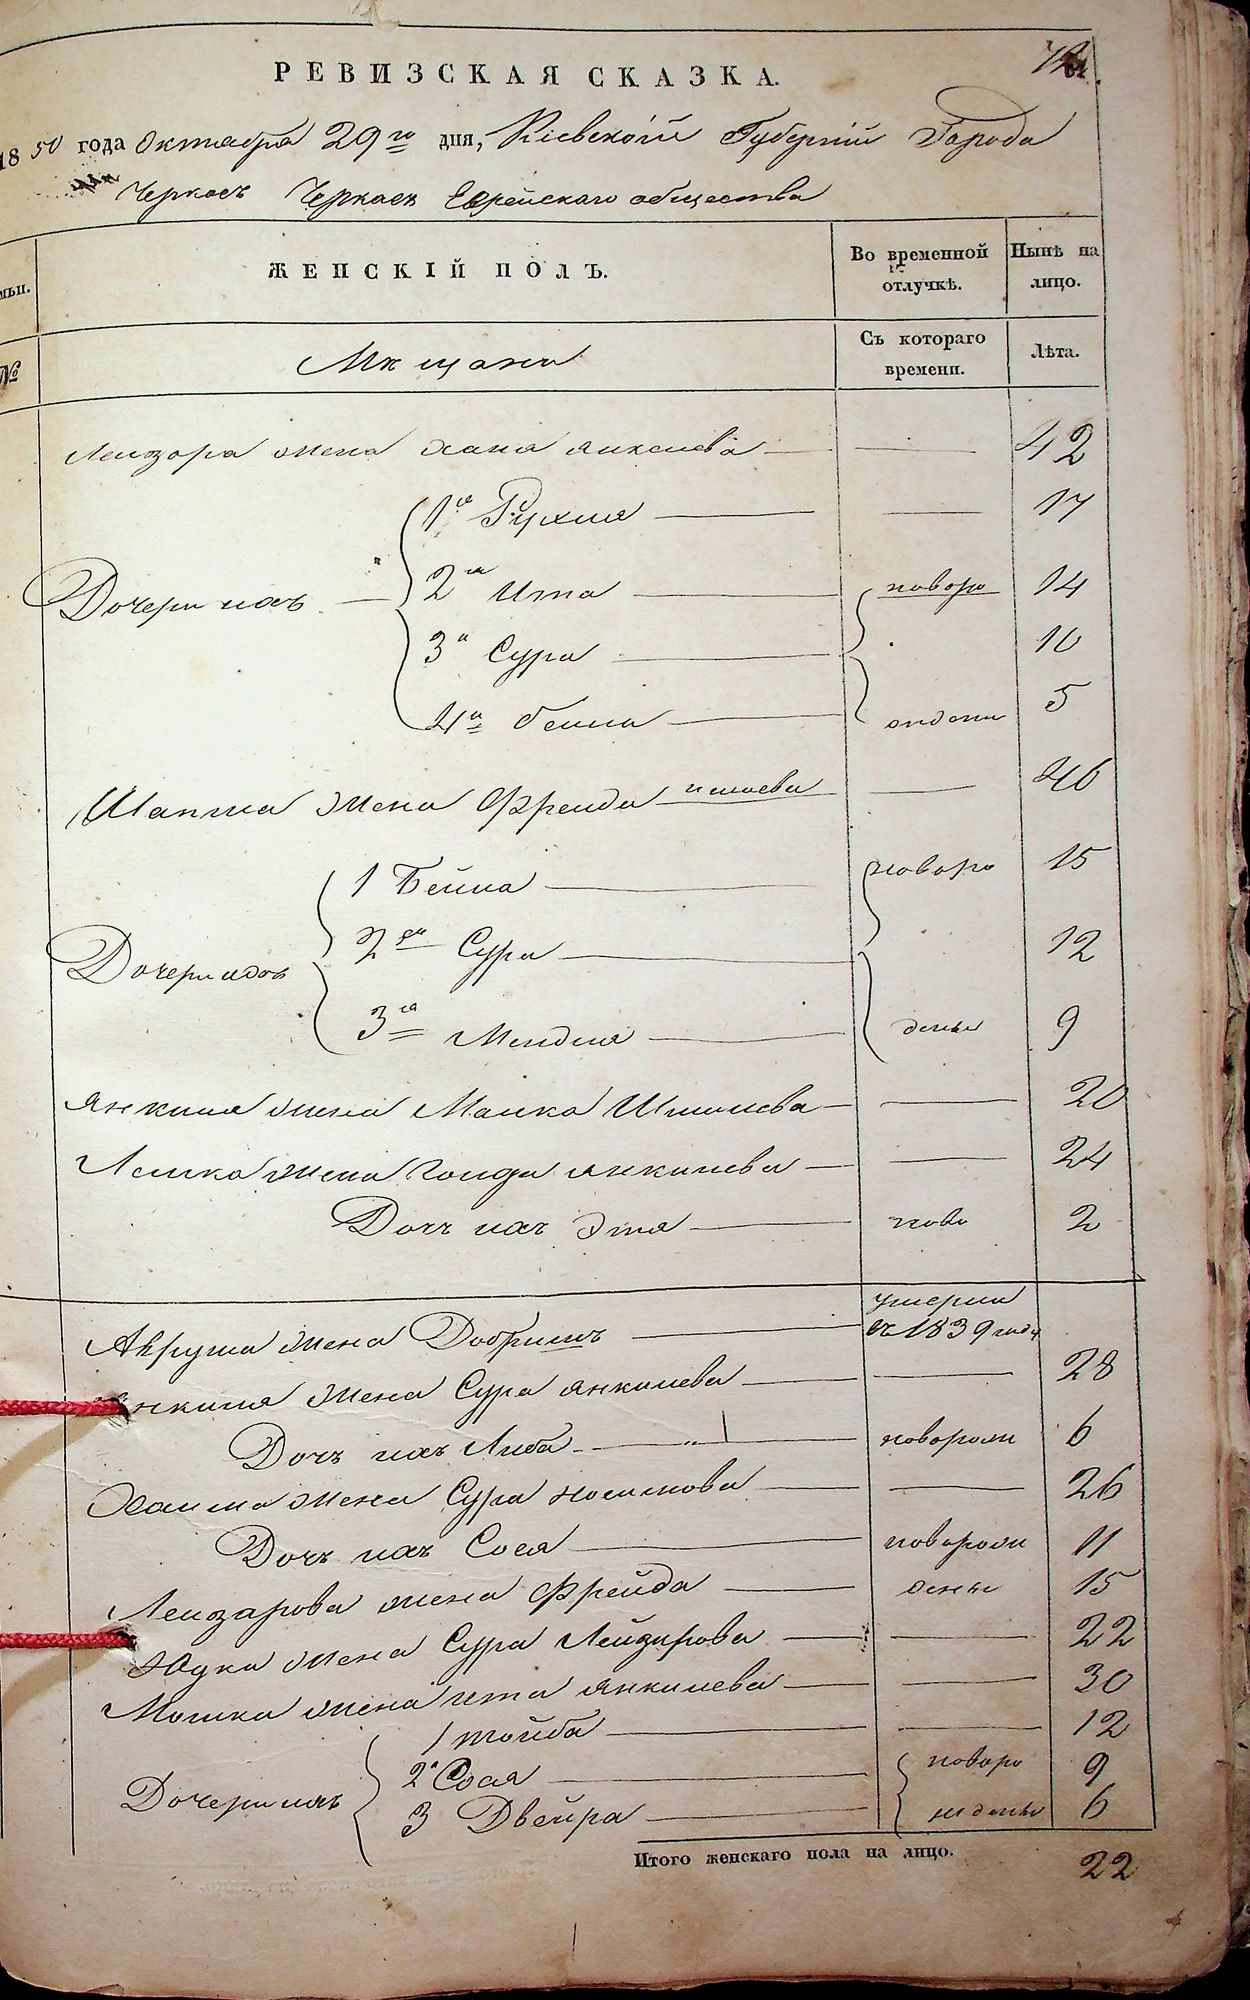 РЕВИЗСКАЯ СКАЗКА.
1850 года Октября 29го дня, Кіевской Губерніи Города
Черкасъ Черкас Еврейскаго общества
мьи. ЖЕНСКІЙ ПОЛЪ. Во временной отлучкѣ. Нынѣ на лицо.
№ Мѣщани Съ котораго времени. Лѣта.
Лейзора жена Хана Янкелева 42
1я Рухля 17
Дочери ихъ 2я Ита новоро 14
3я Сура 10
4я Бейла 5
Шапша жена Фрейда 46
1 Бейла новоро 15
Дочери 2я Сура 12
3я Мендля 9
Янкиля жена Малка 20
Лейка жена Голда Янкилева 24
Дочь ихъ Этя ново 2
Аврума жена Добришъ умерла въ 1839 году
Янкиля жена Сура Янкилева 28
Дочь ихъ Либа новорож 6
Хаима жена Сура 26
Дочь ихъ Сося новорож 11
Лейзарова жена Фрейда 15
Юдка жена Сура Лейзирова 22
Мошка жена Ита Янкилева 30
1 Тойба 12
Дочери ихъ 2я Сося новоро 9
3 Двейра 6
Итого женскаго пола на лицо. 22